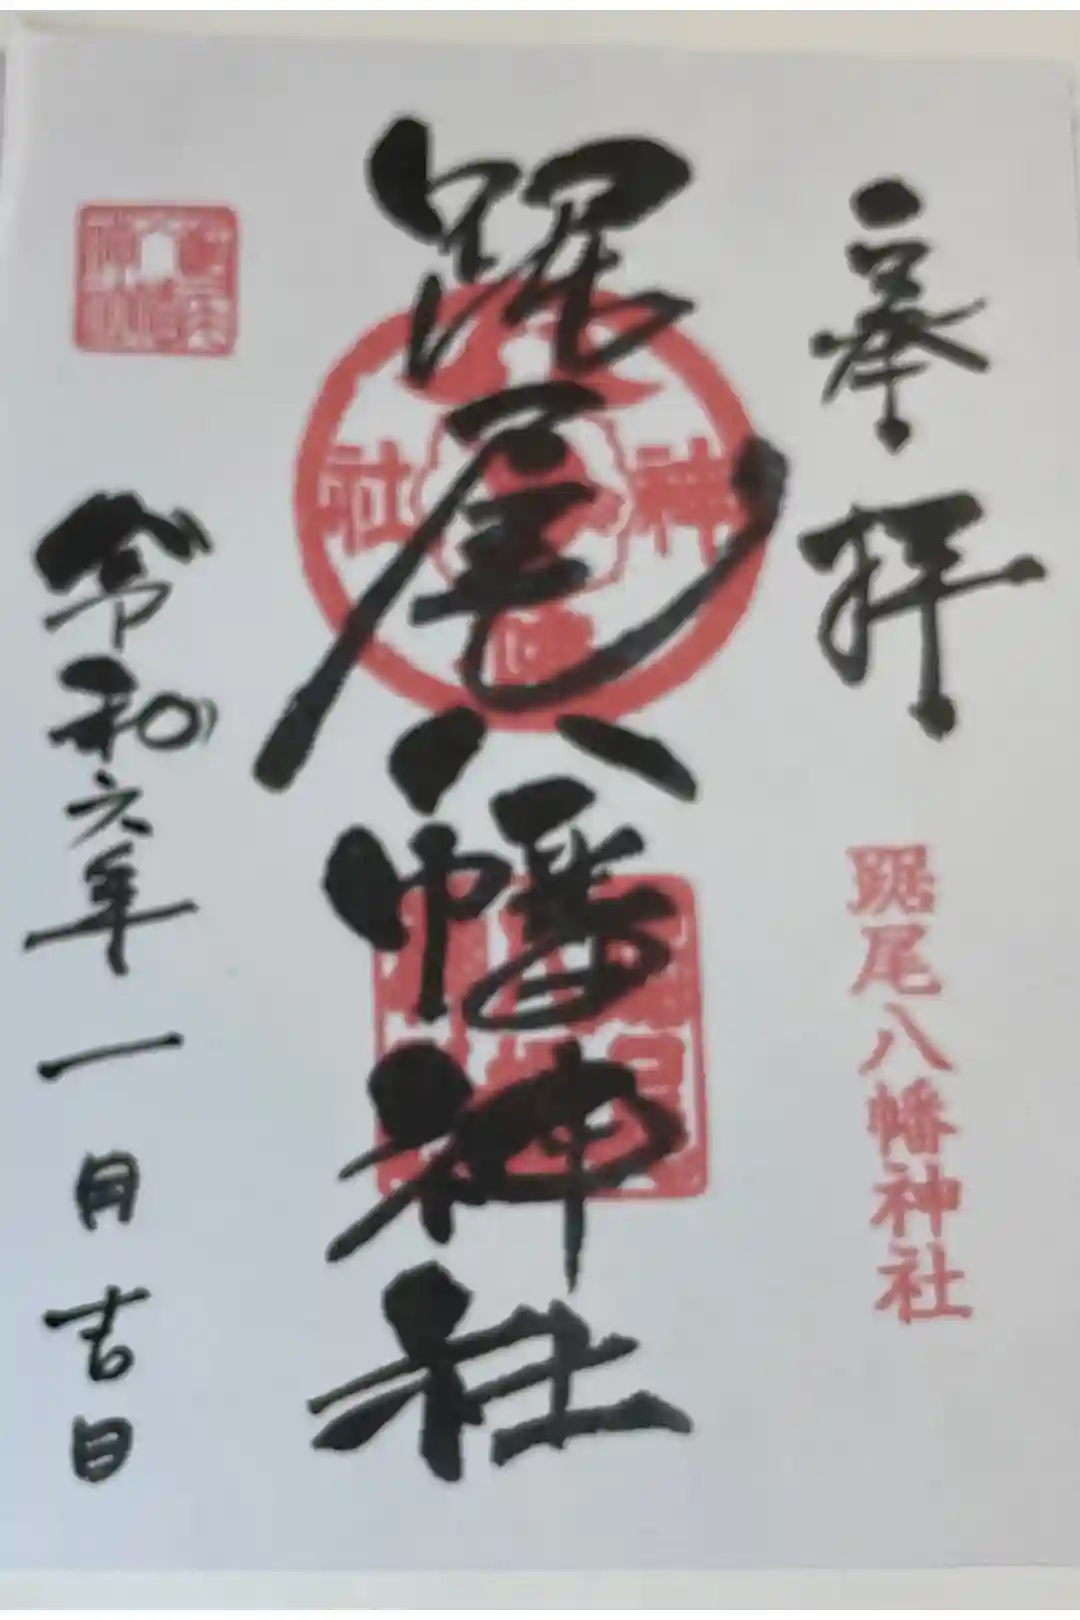 奉拝
踞尾八幡神社
踞尾八幡神社
令和六年一月吉日
神
社